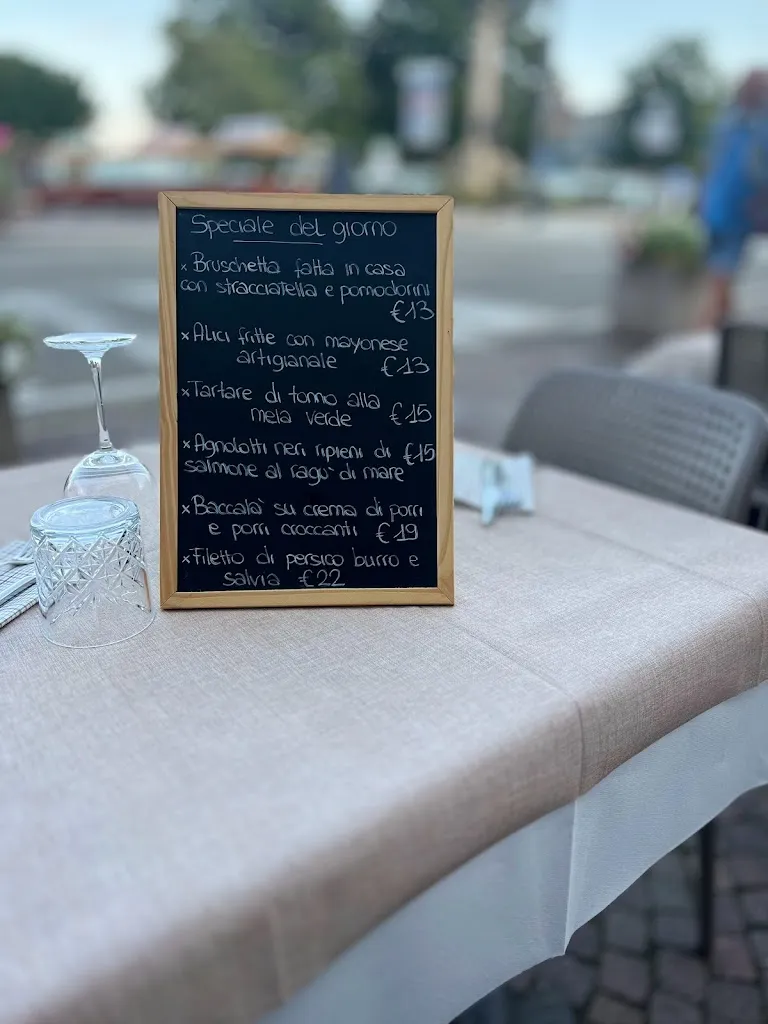 Speciale del giorno
× Bruschetta fatta in casa
con stracciatella e pomodorini
€13
× Alici fritte con mayonese
artigianale €13
× Tartare di tonno alla
mela verde €15
× Agnolotti neri ripieni di €15
salmone al ragu' di mare
× Baccala' su crema di porri
e porri croccanti €19
× Filetto di persico burro e
salvia €22